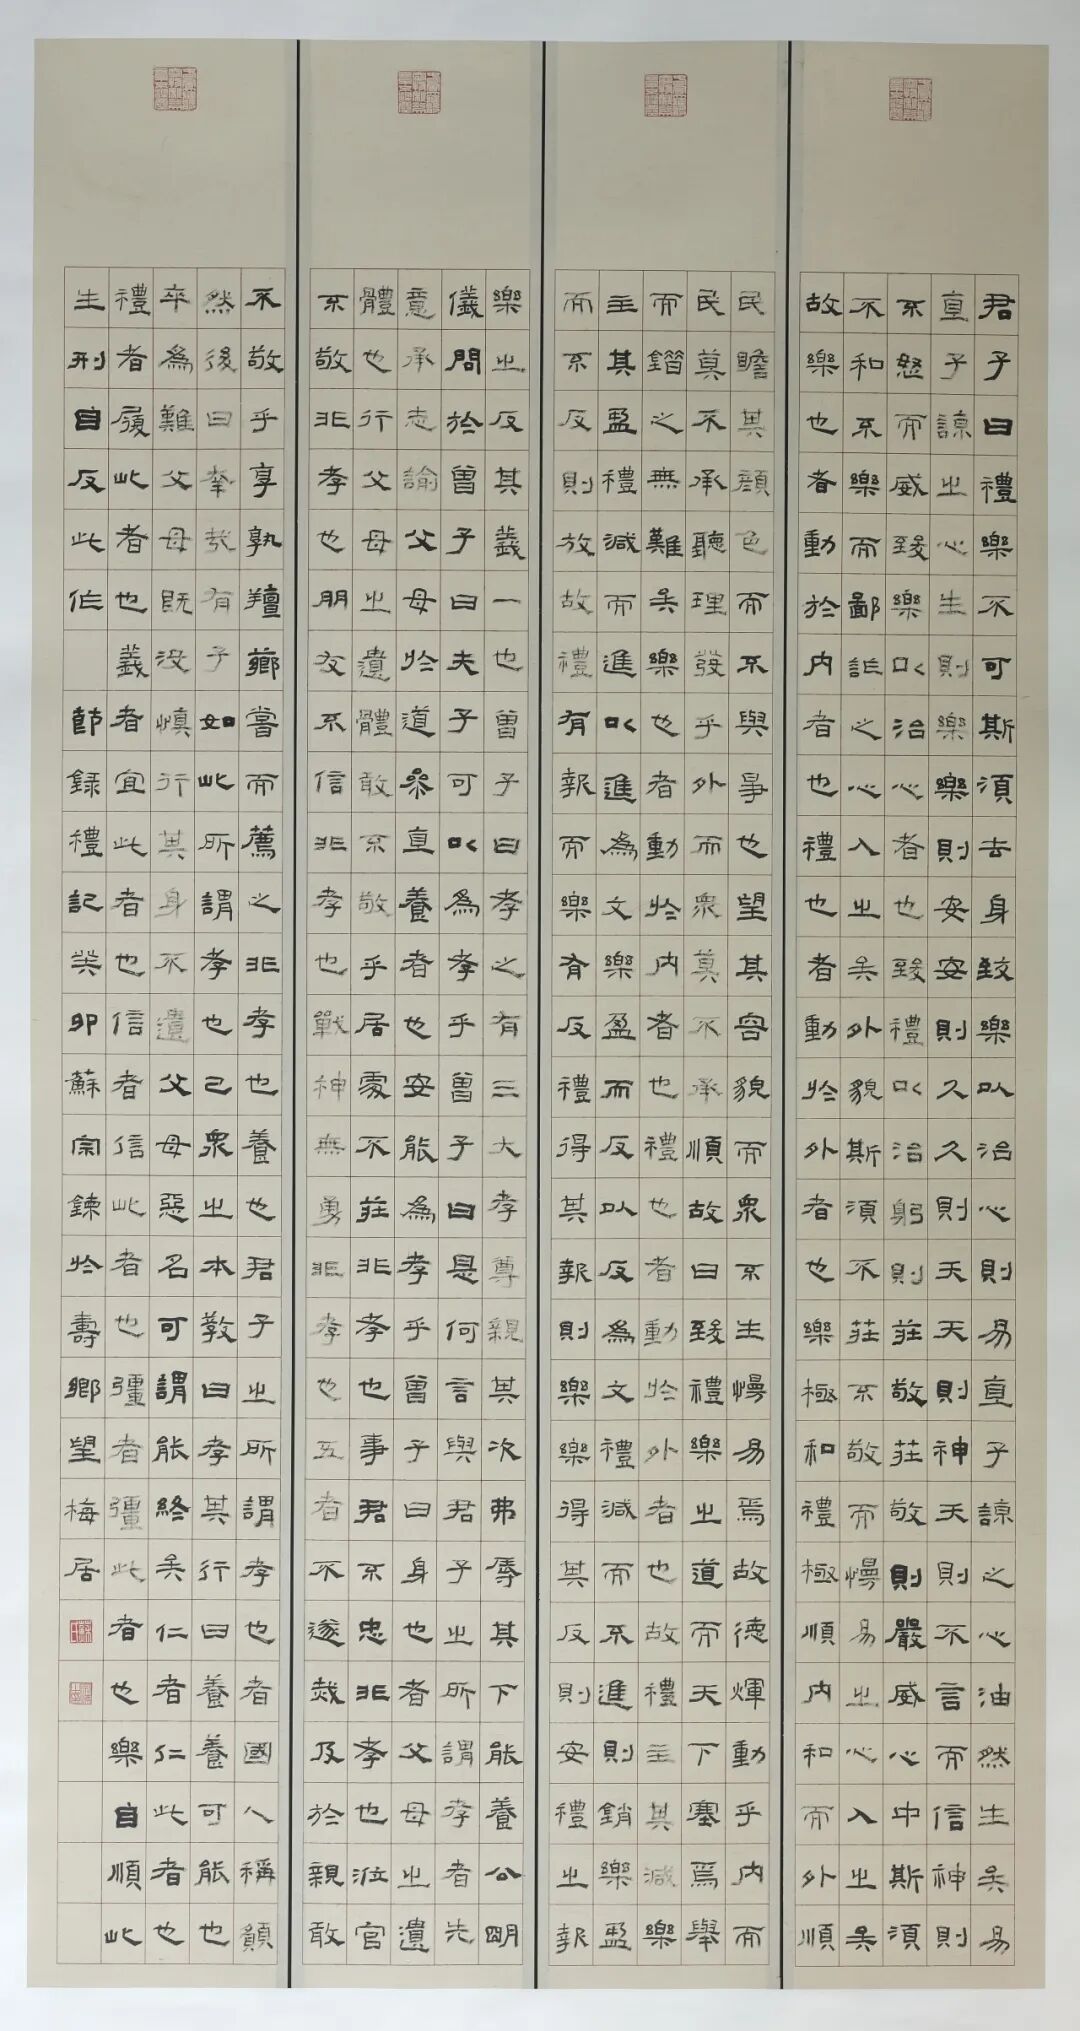 君子曰禮樂不可斯須去身致樂以治心則易直子諒之心油然生矣易
直子諒之心生則樂樂則安安則久久則天天則神天則不言而信神則
不怒而威致樂以治心者也致禮以治躬則莊敬莊敬則嚴威心中斯須
不和不樂而鄙詐之心入之矣外貌斯須不莊不敬而慢易之心入之矣
故樂也者動於內者也禮也者動於外者也樂極和禮極順內和而外順
民瞻其顏色而不與爭也望其容貌而衆不生慢易焉故德煇動乎內而
民莫不承聽理發乎外而衆莫不承順故曰致禮樂之道而天下塞焉舉
而錯之無難矣樂也者動於內者也禮也者動於外者也故禮主其減樂
主其盈禮減而進以進為文樂盈而反以反為文禮減而不進則銷樂盈
而不反則放故禮有報而樂有反禮得其報則樂樂得其反則安禮之報
樂之反其義一也曾子曰孝之有三大孝尊親其次弗辱其下能養公明
儀問於曾子曰夫子可以為孝乎曾子曰是何言與君子之所謂孝者先
意承志諭父母於道參直養者也安能為孝乎曾子曰身也者父母之遺
體也行父母之遺體敢不敬乎居處不莊非孝也事君不忠非孝也涖官
不敬非孝也朋友不信非孝也戰神無勇非孝也五者不遂烖及於親敢
不敬乎享孰羶薌嘗而薦之非孝也養也君子之所謂孝也者國人稱願
然後曰幸哉有子如此所謂孝也已衆之本教曰孝其行曰養養可能也
卒為難父母既沒慎行其身不遺父母惡名可謂能終矣仁者仁此者也
禮者履此者也義者宜此者也信者信此者也彊者彊此者也樂自順此
生刑自反此作 節錄禮記癸卯蘇宗鍊於壽鄉望梅居